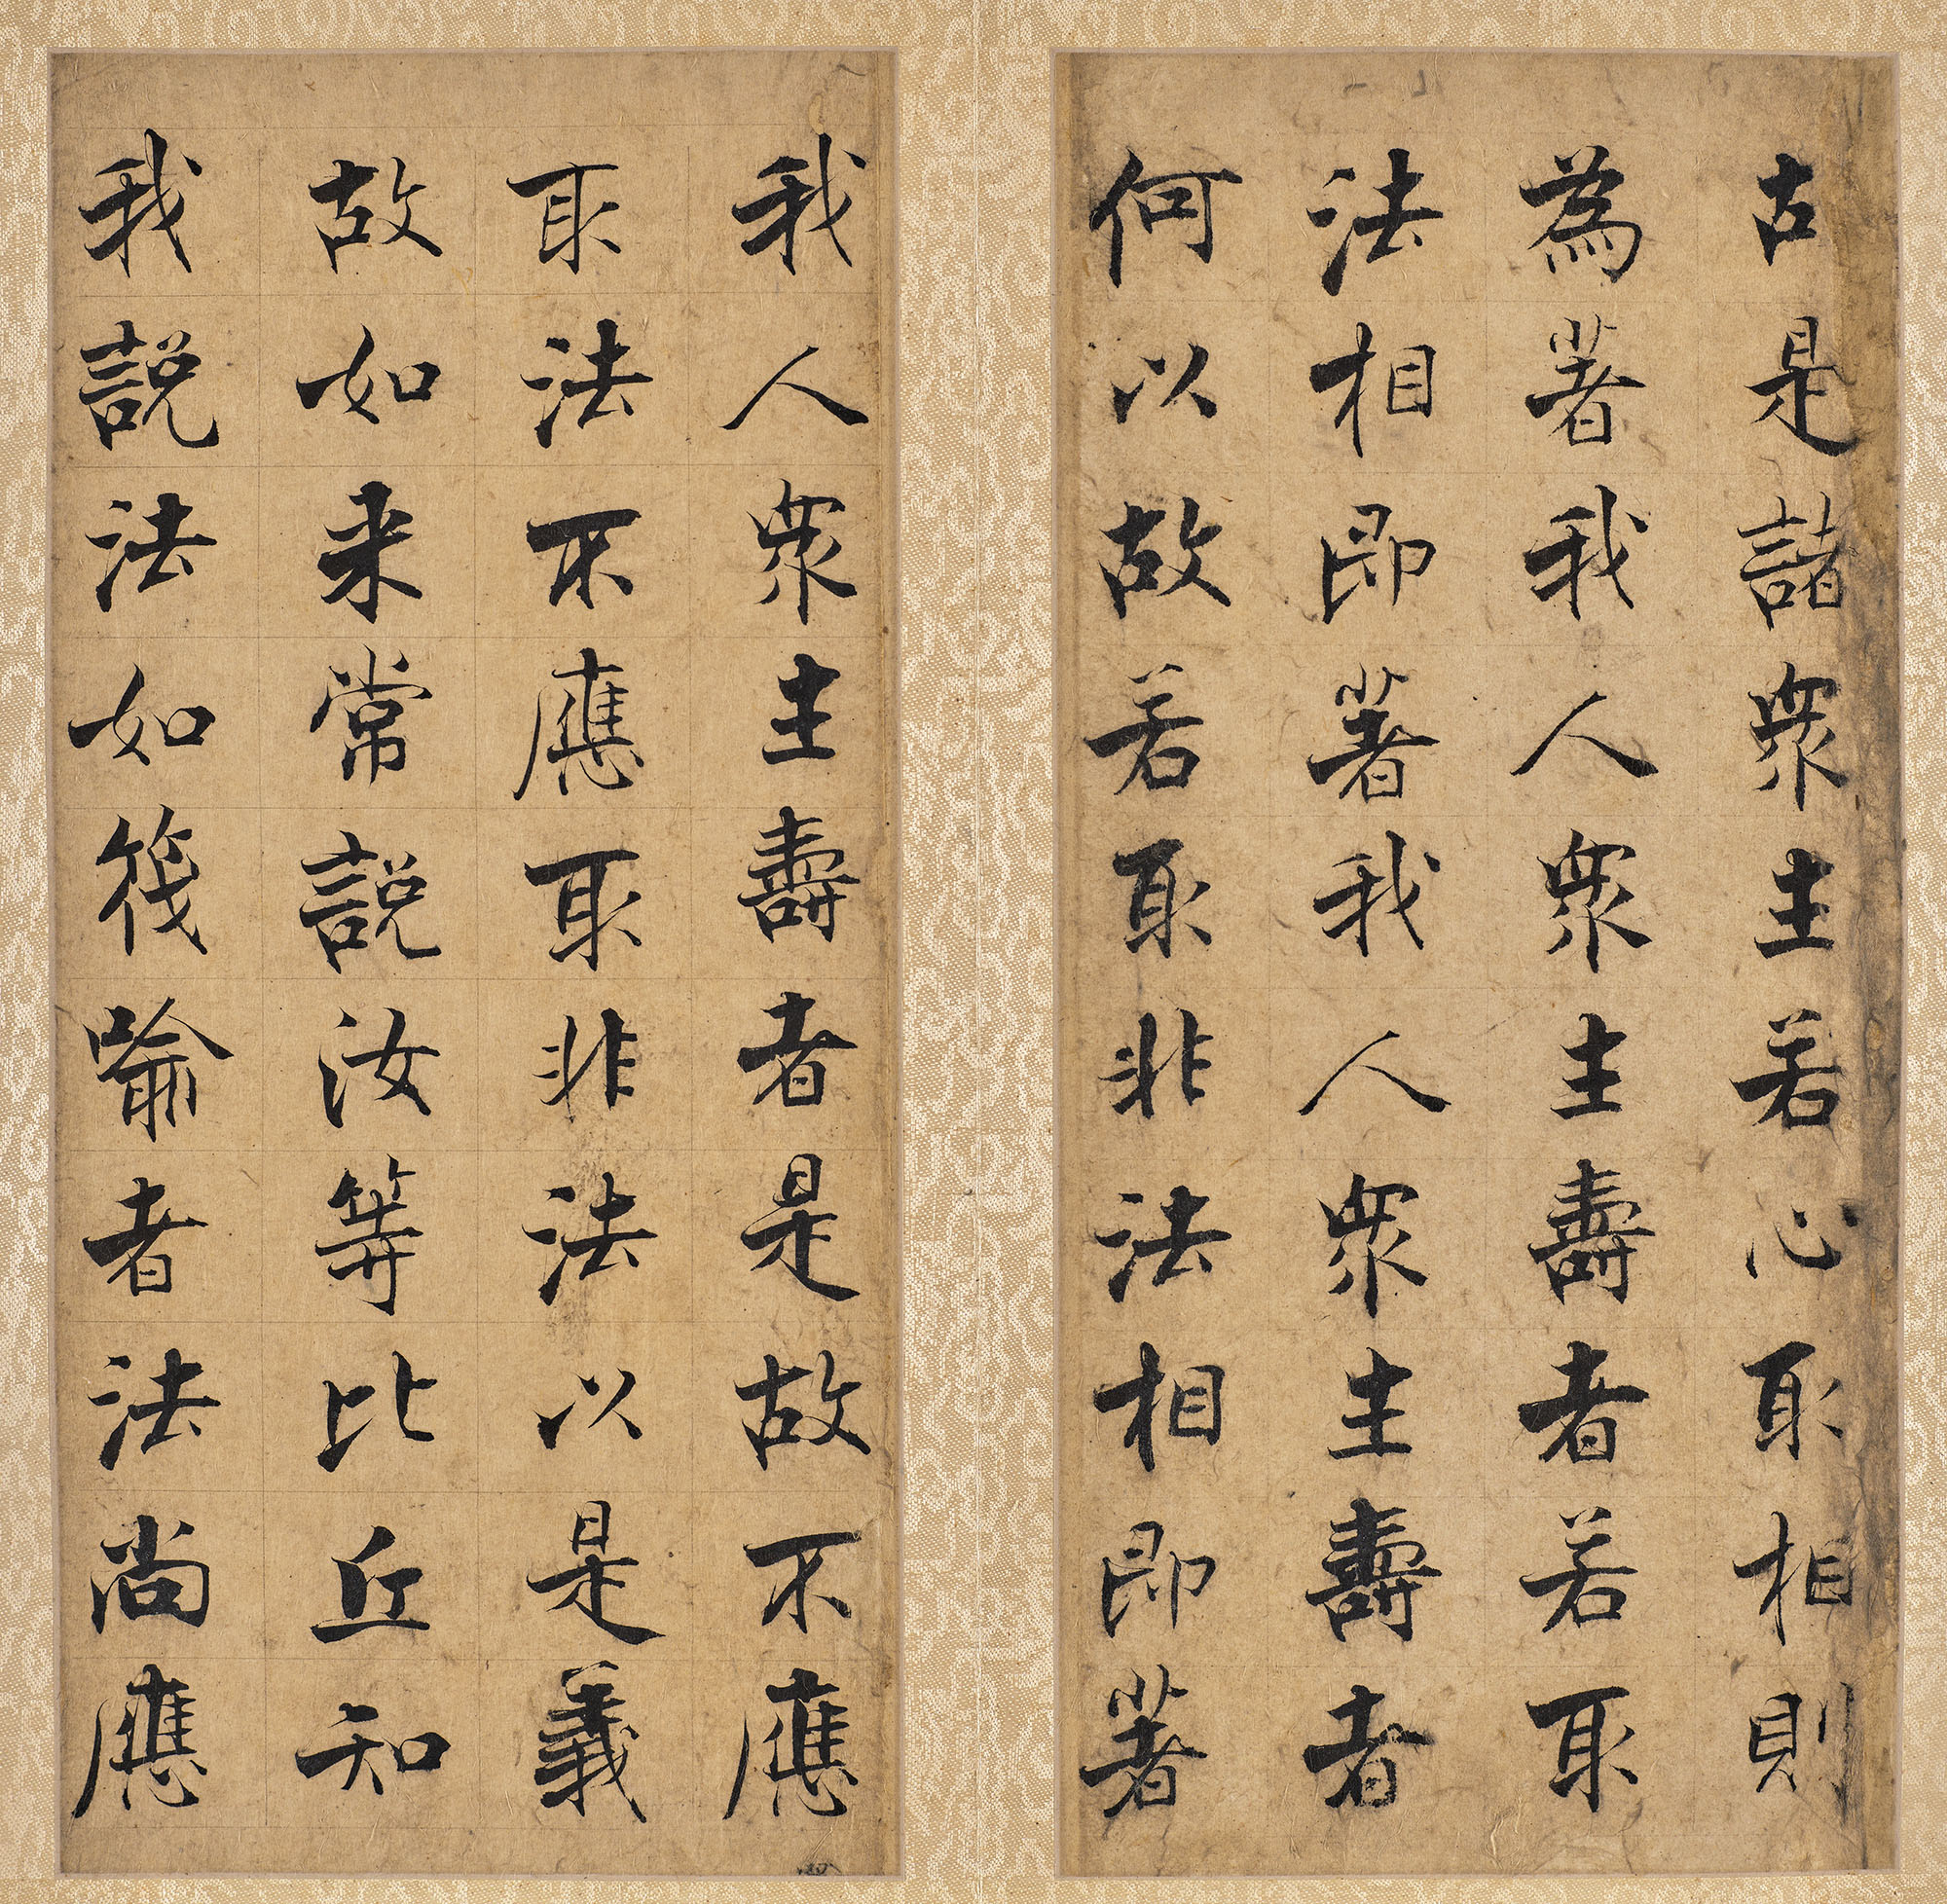 故是諸衆生若心取相則
為著我人衆生壽者若取
法相即著我人衆生壽者
何以故若取非法相即著
我人衆生壽者是故不應
取法不應取非法以是義
故如来常說汝等比丘知
我說法如筏喻者法尚應